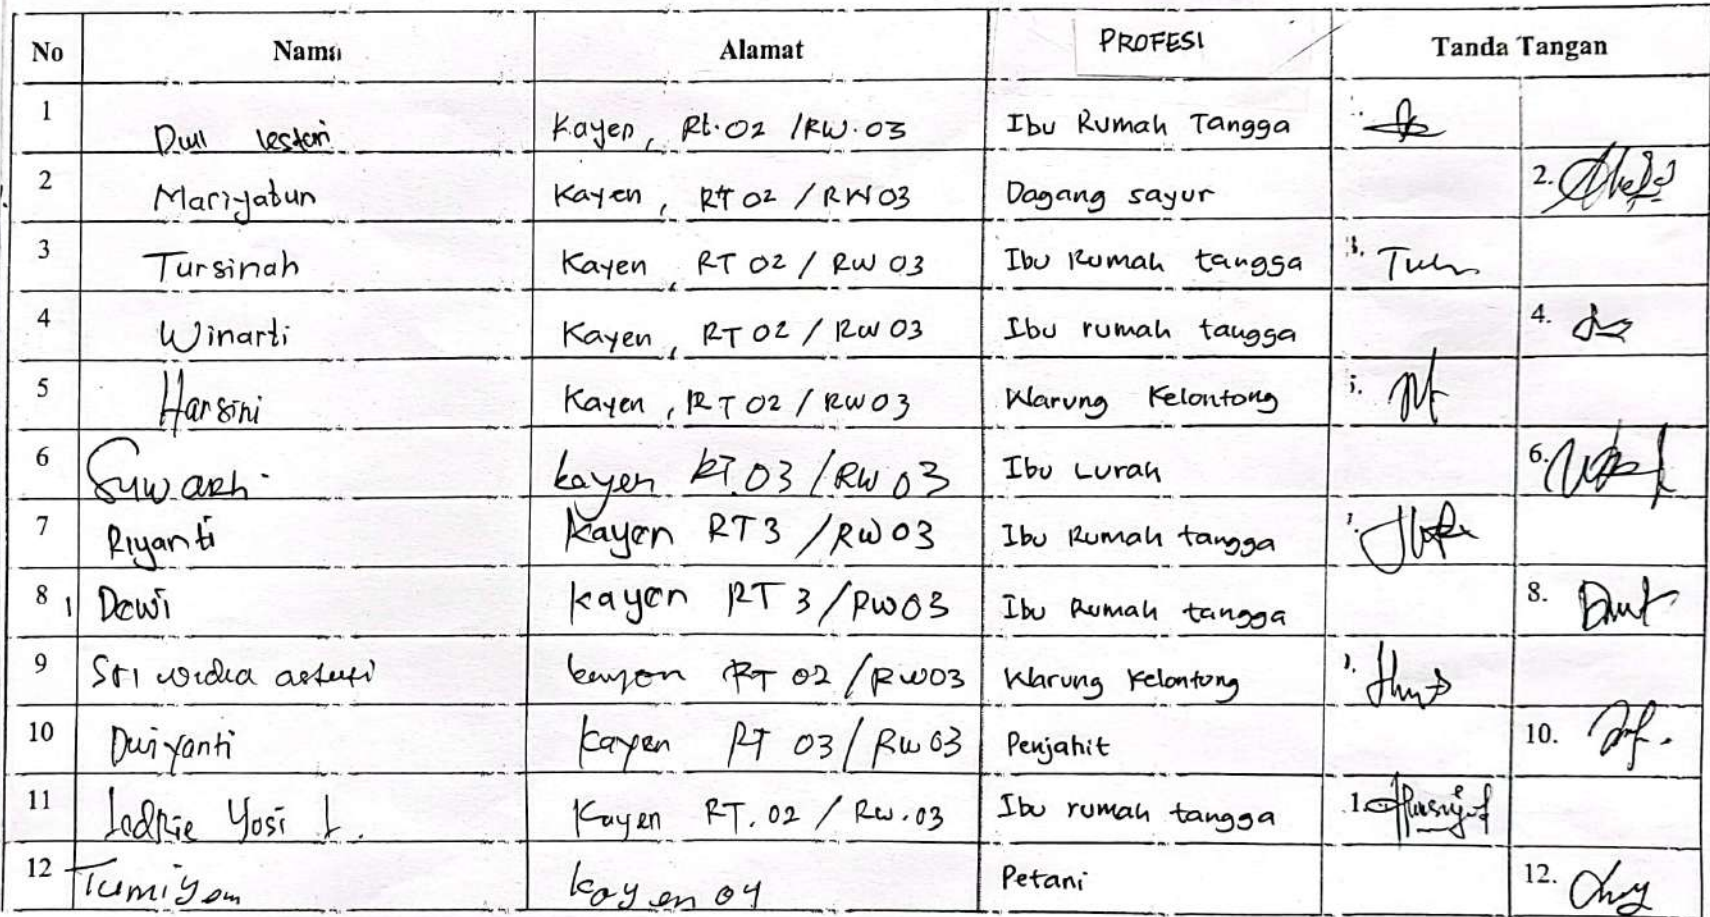 No Nama Alamat PROFESI Tanda Tangan
1 Dwi lestari Kayen, Rt.02 /RW.03 Ibu Rumah Tangga
2 Mariyatun Kayen, RT 02 / RW 03 Dagang sayur 2.
3 Tursinah Kayen RT 02 / RW 03 Ibu Rumah tangga 3.
4 Winarti Kayen, RT 02 / RW 03 Ibu rumah tangga 4.
5 Harsini Kayen, RT 02 / RW 03 Warung Kelontong
6 Suwarti kayen RT.03 /RW 03 Ibu Lurah 6.
7 Riyanti kayen RT 3 /RW 03 Ibu Rumah tangga
8 Dewi kayen RT 3 /RW03 Ibu Rumah tangga 8.
9 Sri widia astuti kayen RT 02 /RW03 Warung Kelontong
10 Dwi yanti kayen RT 03 / RW 03 Penjahit 10.
11 Yosi Kayen RT. 02 / RW .03 Ibu rumah tangga
12 Tumiyem kayen 04 Petani 12.